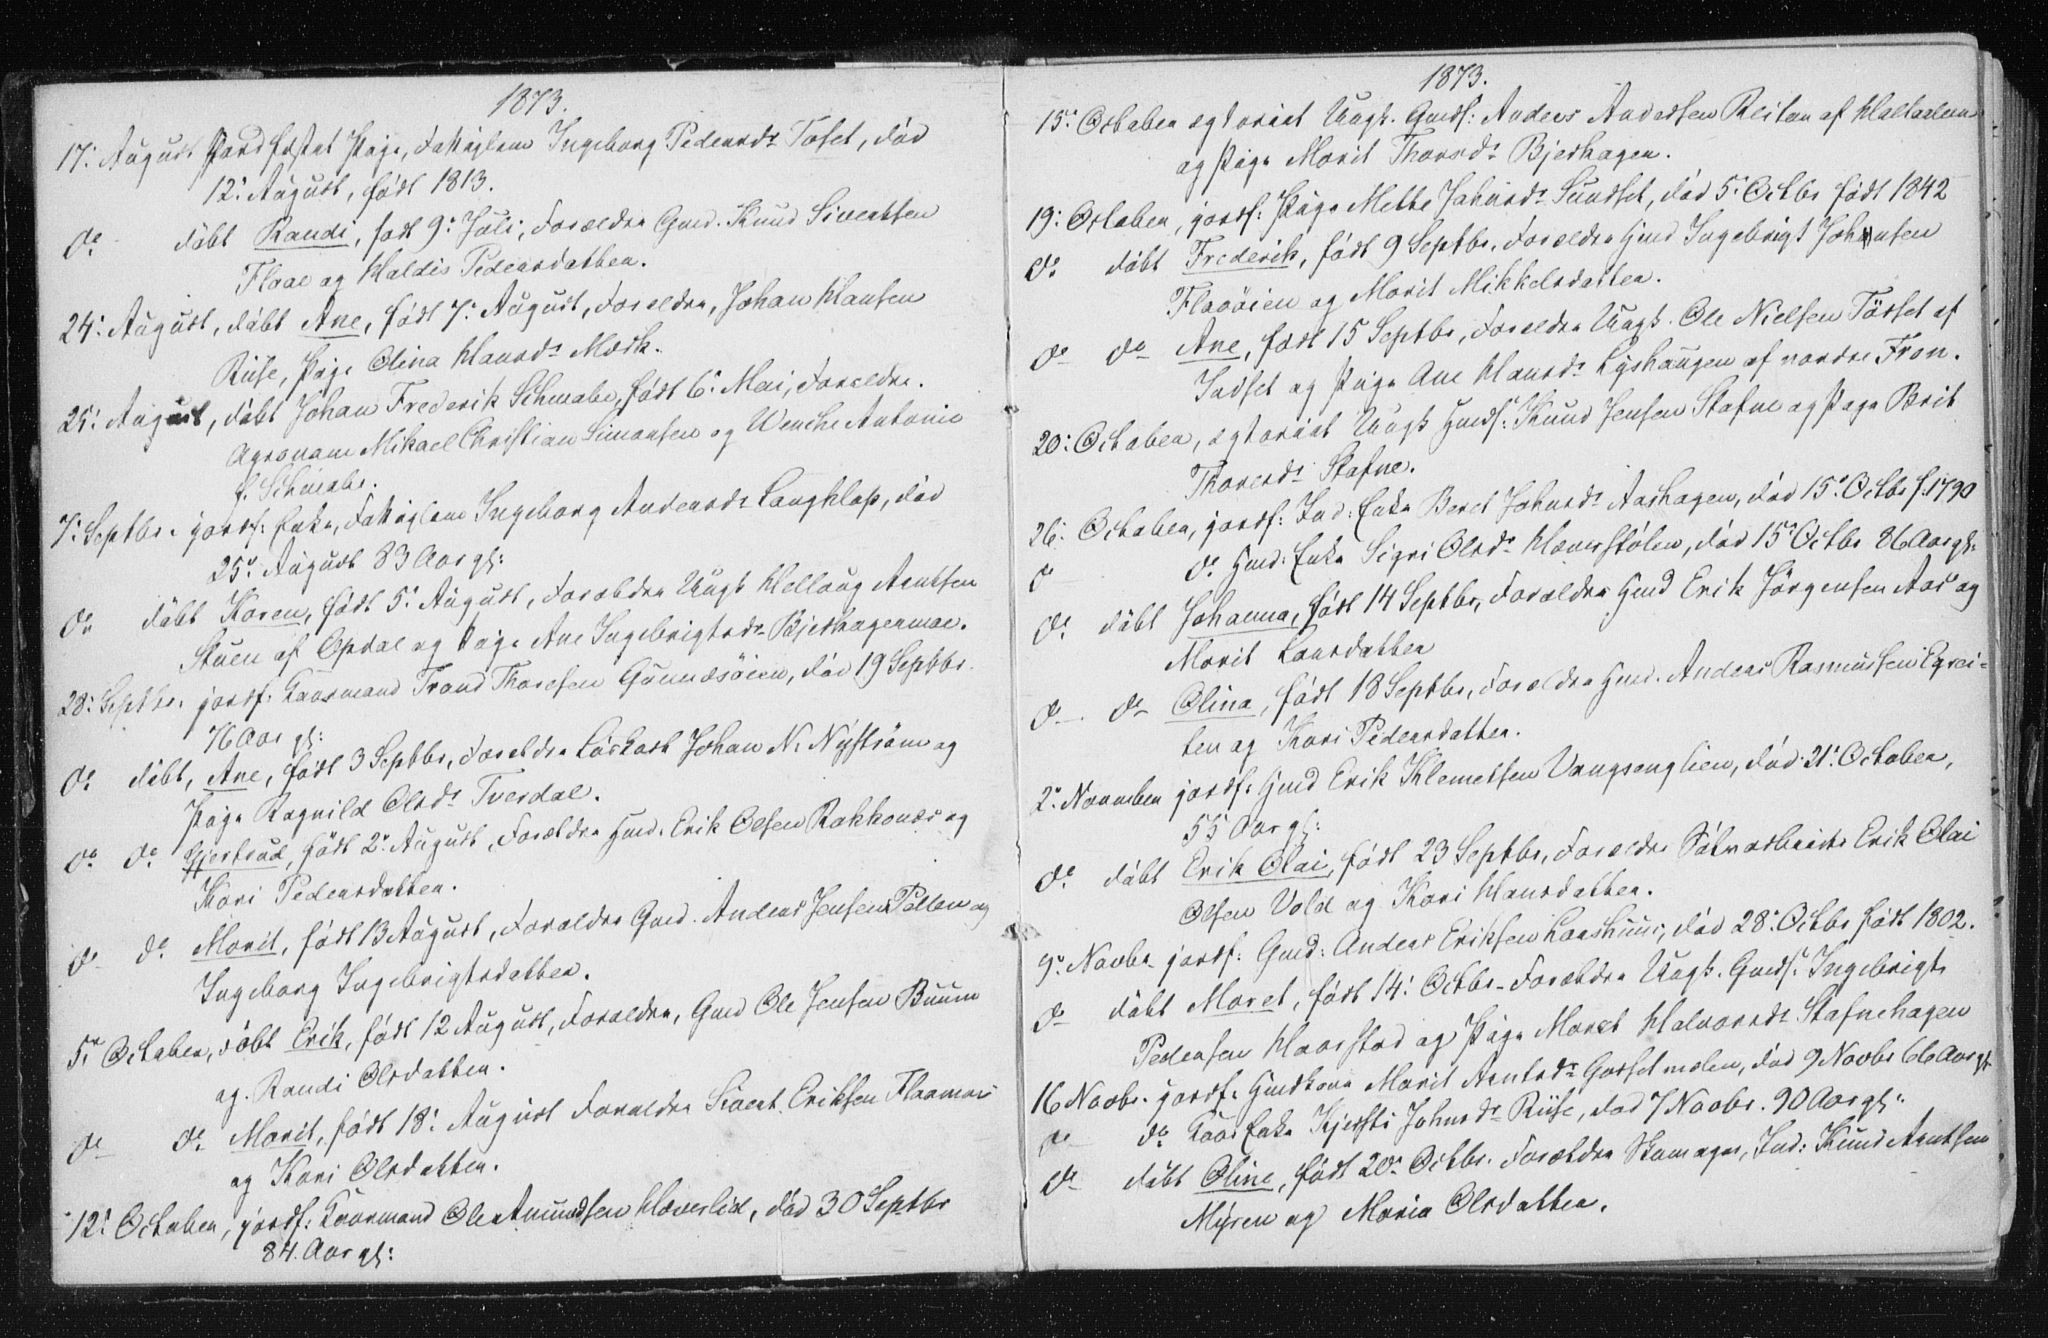 1873.
17: August Jordfæstet Pige, Fattiglem Ingeborg Pedersdr Toset, død
12. August, født 1813.
do døbt Randi, født 9: Juli, Forældre Gmd. Knud Sivertsen
Floae og Haldis Pedersdatter.
24: August, døbt Ane, født 7. August, Forældre, Johan Hansen
Riise, Pige Olina Hansdr Mærk.
25: August, døbt Johan Frederik Schwabe, født 6. Mai, Forældre.
Agronom Mikael Christian Simonsen og Wenche Antonie
f. Schwabe.
7. Septbr. jordf: Enke, Fattiglem Ingeborg Andersdr Langklop, død
25. August 83 Aar gl:
do døbt Karen, født 5. August, Forældre Ungk Helloug Arntsen
Stuen af Opdal og Pige Ane Ingebrigtsdr Bjerkagermoe.
28: Septbr. jordf: Kaarmand Trond Thoresen Gunnesøien, død 19 Septbr.
76 Aar gl:
do døbt, Ane, født 3 Septbr, Forældre Løskarl Johan N. Nystrøm og
Pige Ragnild Olsdr Tverdal.
do do Gjertrud, født 2. August, Forældre Gmd. Erik Olsen Rokkones og
Kari Pedersdatter.
do do Marit, født 13 August, Forældre Gmd. Anders Jensen Pollen og
Ingeborg Ingebrigtsdatter.
5. October, døbt Erik, født 12 August, Forældre, Gmd Ole Jensen Buum
og Randi Olsdatter.
do do Marit, født 18. August Forældre Sivert Eriksen Floamoe
og Kari Olsdatter.
12. October, jordf: Kaarmand Ole Amundsen Hæverlid, død 30 Septbr
84. Aar gl:
1873.
15. October ægteviet Ungk. Gmdf: Anders Andersen Reitan af Haltdalen
og Pige Marit Thorsdr Bjerkagen.
19: October, jordf: Pige Mette Johnsdr Sundset, død 5. Octbr født 1842
do døbt Frederik, født 9 Septbr, Forældre Gmd Ingebrigt Johnsen
Flaaøien og Marit Mikkelsdatter.
do do Ane, født 15 Septbr, Forældre Ungk. Ole Nielsen Tøsset af
Indset og Pige Ane Hansdr Lyshaugen af nordre Fron.
20: October, ægteviet Ungk Gmdf: Knud Jensen Stafne og Pige Brit
Thoresdr Stafne.
26: October, jordf: Ind: Enke Beret Johnsdr Aashagen, død 15. Octbr f. 1790
d do Gmd: Enke Sigri Olsdr Haverstølen, død 15 Octbr 86 Aar gl:
do døbt Johanna, født 14 Septbr, Forældre Gmd Erik Jørgensen Aas og
Marit Larsdatter
do do Olina, født 18 Septbr, Forældre Gmd. Anders Rasmussen Egrei-
ten og Kari Pedersdatter.
2. November jordf: Gmd Erik Klemetsen Vangsenglien, død 21. October,
55 Aar gl:
do døbt Erik Olai, født 23 Septbr, Forældre Erik Olai
Olsen Vold og Kari Hansdatter.
9. Novbr jordf: Gmd: Anders Eriksen Laashuus, død 28. Octbr født 1802.
do døbt Maret, født 14. Octbr. Forældre Ungk. Gmdf: Ingebrigt
Pedersen Haarstad og Pige Maret Halvorsdr Stafnehagen
16 Novbr. jordf: Gmdkone Marit Arntsdr Gorsetmelen, død 9 Novbr 66 Aar gl:
do do Kaar Enke Kjersti Johnsdr Riise, død 7 Novbr. 90 Aar gl:
do døbt Oline, født 20. Octbr. Forældre Skomager, Ind: Knud Arntsen
Myren og Maria Olsdatter.